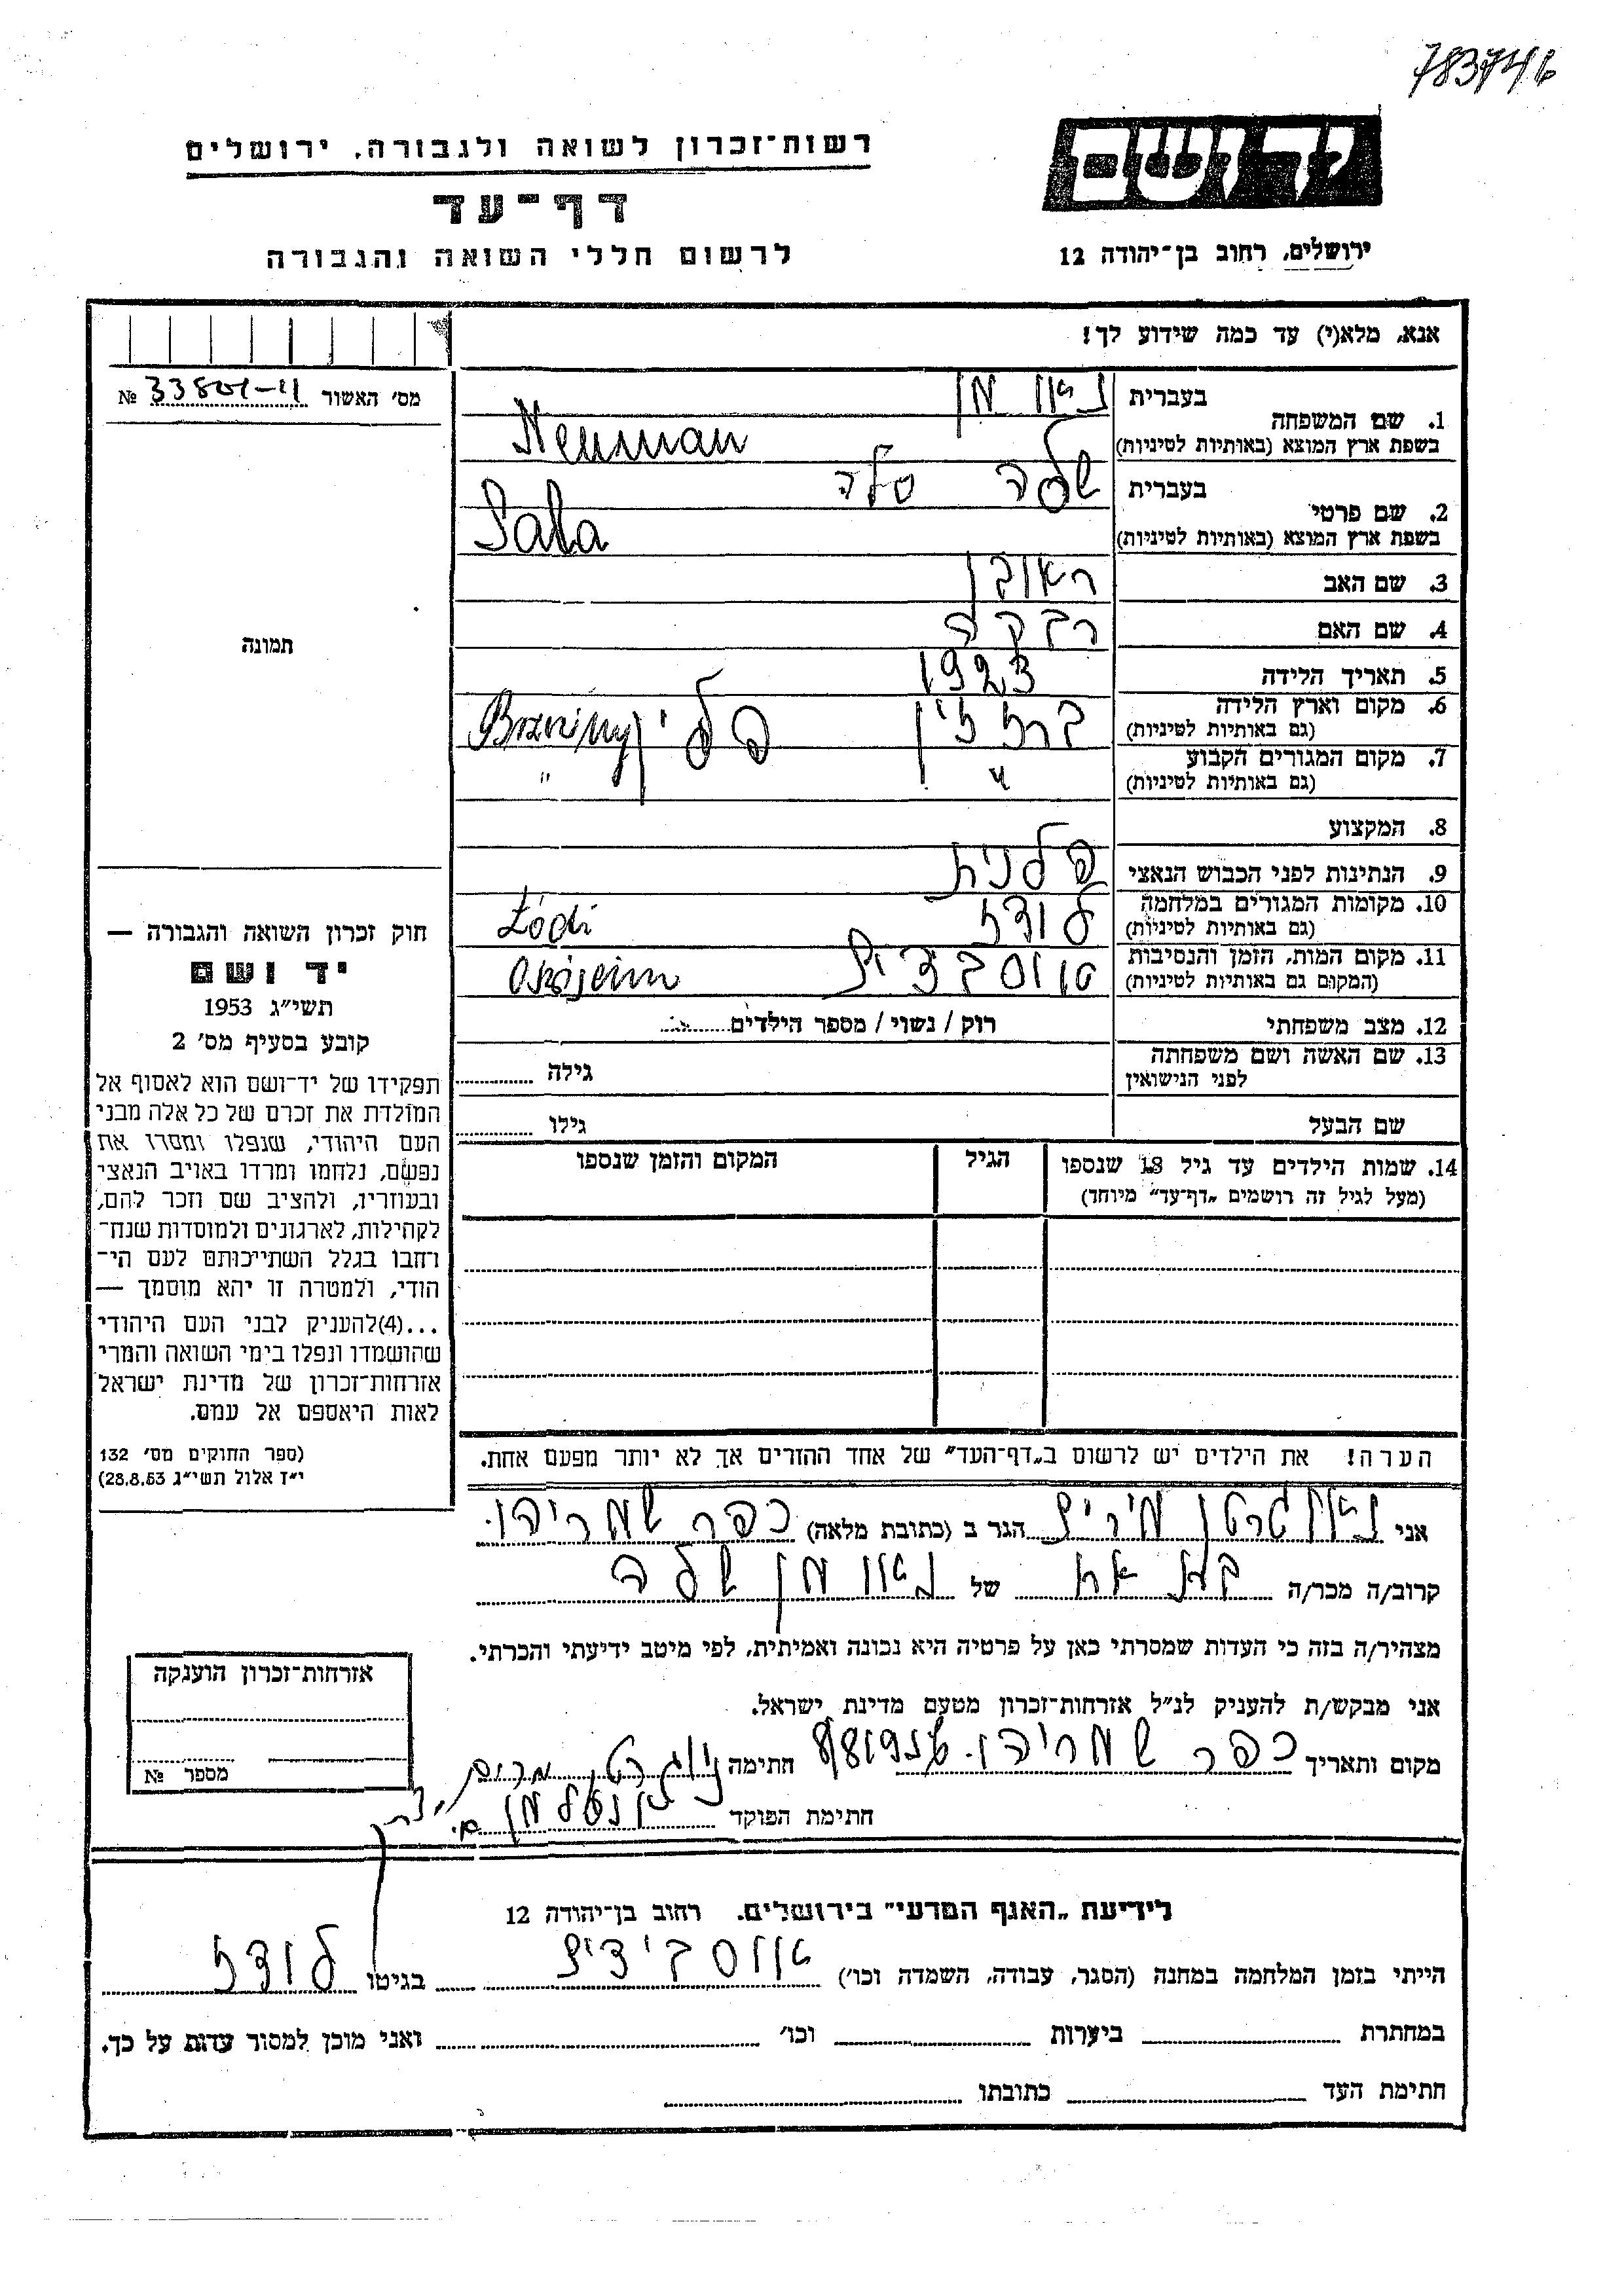 783746
יד ושם
רשות־זכרון לשואה ולגבורה, ירושלים
דף־עד
לרשום חללי השואה והגבורה
ירושלים, רחוב בן־יהודה 12
אנא, מלא(י) עד כמה שידוע לך!
מס׳ האשור № 33801-11
1. שם המשפחה
בעברית נאומן
בשפת ארץ המוצא (באותיות לטיניות) Neuman
2. שם פרטי
בעברית שלה סלה
בשפת ארץ המוצא (באותיות לטיניות) Sala
3. שם האב ראובן
4. שם האם רבקה
5. תאריך הלידה 1923
6. מקום וארץ הלידה ברזזין פלין Brzeziny
(גם באותיות לטיניות)
7. מקום המגורים הקבוע " "
(גם באותיות לטיניות)
8. המקצוע
9. הנתינות לפני הכבוש הנאצי פלנית
10. מקומות המגורים במלחמה לודז Łódź
(גם באותיות לטיניות)
11. מקום המות, הזמן והנסיבות
(המקום גם באותיות לטיניות)
12. מצב משפחתי רוק / נשוי / מספר הילדים
13. שם האשה ושם משפחתה
לפני הנישואין גילה
שם הבעל גילו
14. שמות הילדים עד גיל 18 שנספו הגיל המקום והזמן שנספו
(מעל לגיל זה רושמים „דף־עד״ מיוחד)
הערה! את הילדים יש לרשום ב„דף־העד״ של אחד ההורים אך לא יותר מפעם אחת.
תמונה
חוק זכרון השואה והגבורה —
יד ושם
תשי״ג 1953
קובע בסעיף מס׳ 2
תפקידו של יד־ושם הוא לאסוף אל
המולדת את זכרם של כל אלה מבני
העם היהודי, שנפלו ומסרו את
נפשם, נלחמו ומרדו באויב הנאצי
ובעוזריו, ולהציב שם וזכר להם,
לקהילות, לארגונים ולמוסדות שנח־
רחבו בגלל השתייכותם לעם הי־
הודי, ולמטרה זו יהא מוסמך —
...(4)להעניק לבני העם היהודי
שהושמדו ונפלו בימי השואה והמרי
אזרחות־זכרון של מדינת ישראל
לאות היאספם אל עמם.
(ספר החוקים מס׳ 132
י״ז אלול תשי״ג 28.8.53)
אני הגר ב (כתובת מלאה) כפר שמריהו.
קרוב/ה מכר/ה של נאומן שלה
מצהיר/ה בזה כי העדות שמסרתי כאן על פרטיה היא נכונה ואמיתית, לפי מיטב ידיעתי והכרתי.
אני מבקש/ת להעניק לנ״ל אזרחות־זכרון מטעם מדינת ישראל.
מקום ותאריך כפר שמריהו חתימה
חתימת הפוקד
אזרחות־זכרון הוענקה
מספר №
לידיעת „האגף המדעי״ בירושלים, רחוב בן־יהודה 12
הייתי בזמן המלחמה במחנה (הסגר, עבודה, השמדה וכו׳) אוסבידיץ בגיטו לודז
במחתרת ביערות וכו׳ ואני מוכן למסור עדות על כך.
חתימת העד כתובתו